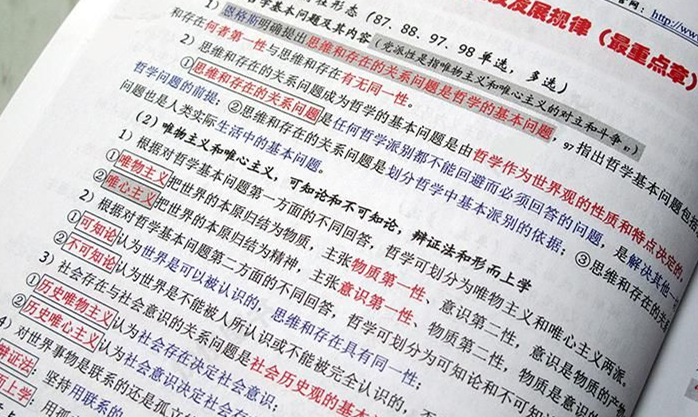 官网：http://www
发展规律（最重点章）
性形态（87、88、97、98 单选，多选）
学基本问题及其内容（党派性是指唯物主义和唯心主义的对立和斗争97）
1）恩格斯明确提出思维和存在的关系问题是哲学的基本问题，97指出哲学基本问题包括
和存在何者第一性与思维和存在有无同一性。
2）思维和存在的关系问题成为哲学的基本问题是由哲学作为世界观的性质和特点决定的。
①思维和存在的关系问题是任何哲学派别都不能回避而必须回答的问题，是解决其他一
哲学问题的前提；②思维和存在的关系问题是划分哲学中基本派别的依据；③思维和存在的关
问题也是人类实际生活中的基本问题。
（2）唯物主义和唯心主义，可知论和不可知论，辩证法和形而上学
1）根据对哲学基本问题第一方面的不同回答，哲学可划分为唯物主义和唯心主义两派。
①唯物主义把世界的本原归结为物质，主张物质第一性、意识第二性，意识是物质的产物
②唯心主义把世界的本原归结为精神，主张意识第一性、物质第二性，物质是意识的
2）根据对哲学基本问题第二方面的不同回答，哲学可划分为可知论和不可知
①可知论认为世界是可以被认识的，思维和存在具有同一性；
②不可知论认为世界是不能被人所认识或不能被完全认识的，
3）社会存在与社会意识的关系问题是社会历史观的基本
①历史唯物主义认为社会存在决定社会意识；
②历史唯心主义认为社会意识决定社会存
4）对世界事物是联系的还是孤立
辩证法：坚持用联系的
而上学：用孤